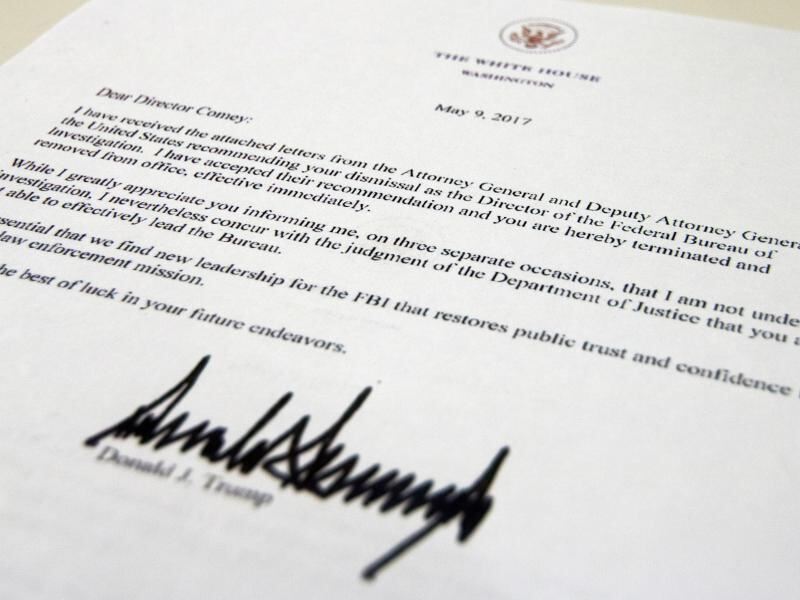 THE WHITE HOUSE
WASHINGTON
May 9, 2017
Dear Director Comey:
I have received the attached letters from the Attorney General and Deputy Attorney Genera
the United States recommending your dismissal as the Director of the Federal Bureau of
Investigation. I have accepted their recommendation and you are hereby terminated and
removed from office, effective immediately.
While I greatly appreciate you informing me, on three separate occasions, that I am not unde
nvestigation, I nevertheless concur with the judgment of the Department of Justice that you a
t able to effectively lead the Bureau.
sential that we find new leadership for the FBI that restores public trust and confidence
law enforcement mission.
he best of luck in your future endeavors.
Donald J. Trump